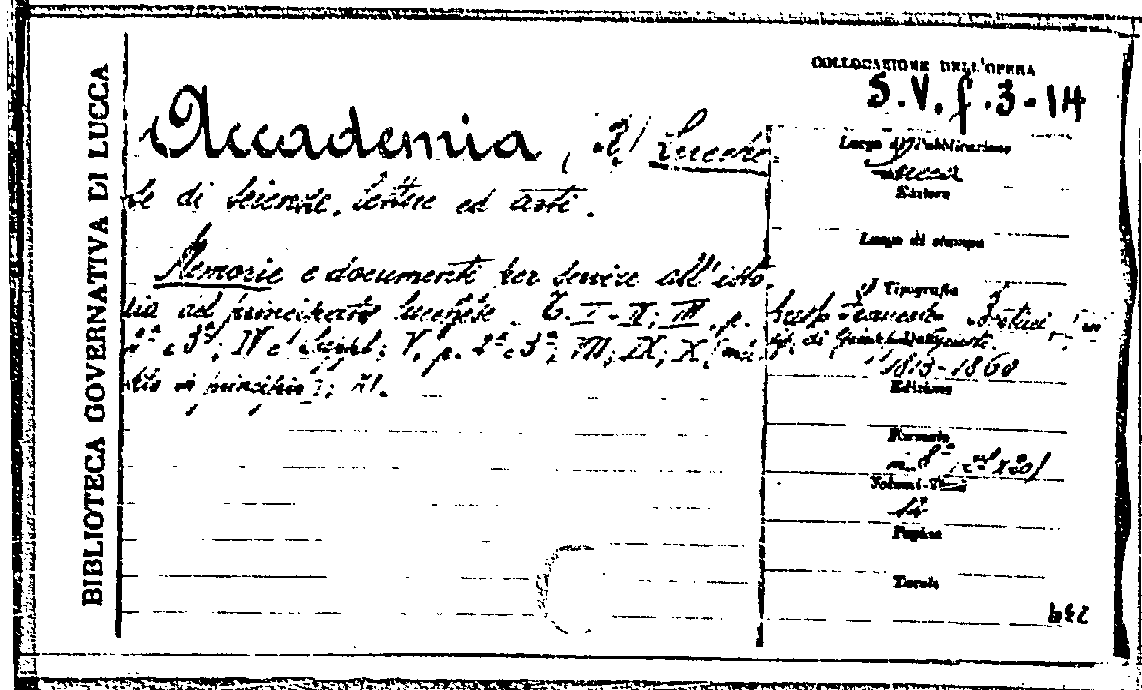 BIBLIOTECA GOVERNATIVA DI LUCCA
COLLOCAZIONE DELL'OPERA
S.V.f.3-14
Accademia, (R.) Lucche-
se di Scienze, lettere ed arti.
Memorie e documenti per servire all'isto-
ria del principato lucchese. T. I-II; III, p.
2ª e 3ª; IV e Suppl.; V, p. 2ª e 3ª; VII; IX; X
in principio); XI.
Luogo di Pubblicazione
Lucca
Editore
Luogo di stampa
Tipografia
Francesco Bertini,
tip. di
1813-1860
Edizione
Formato
in 8°
Volumi-Tomi
14
Pagine
Tavole